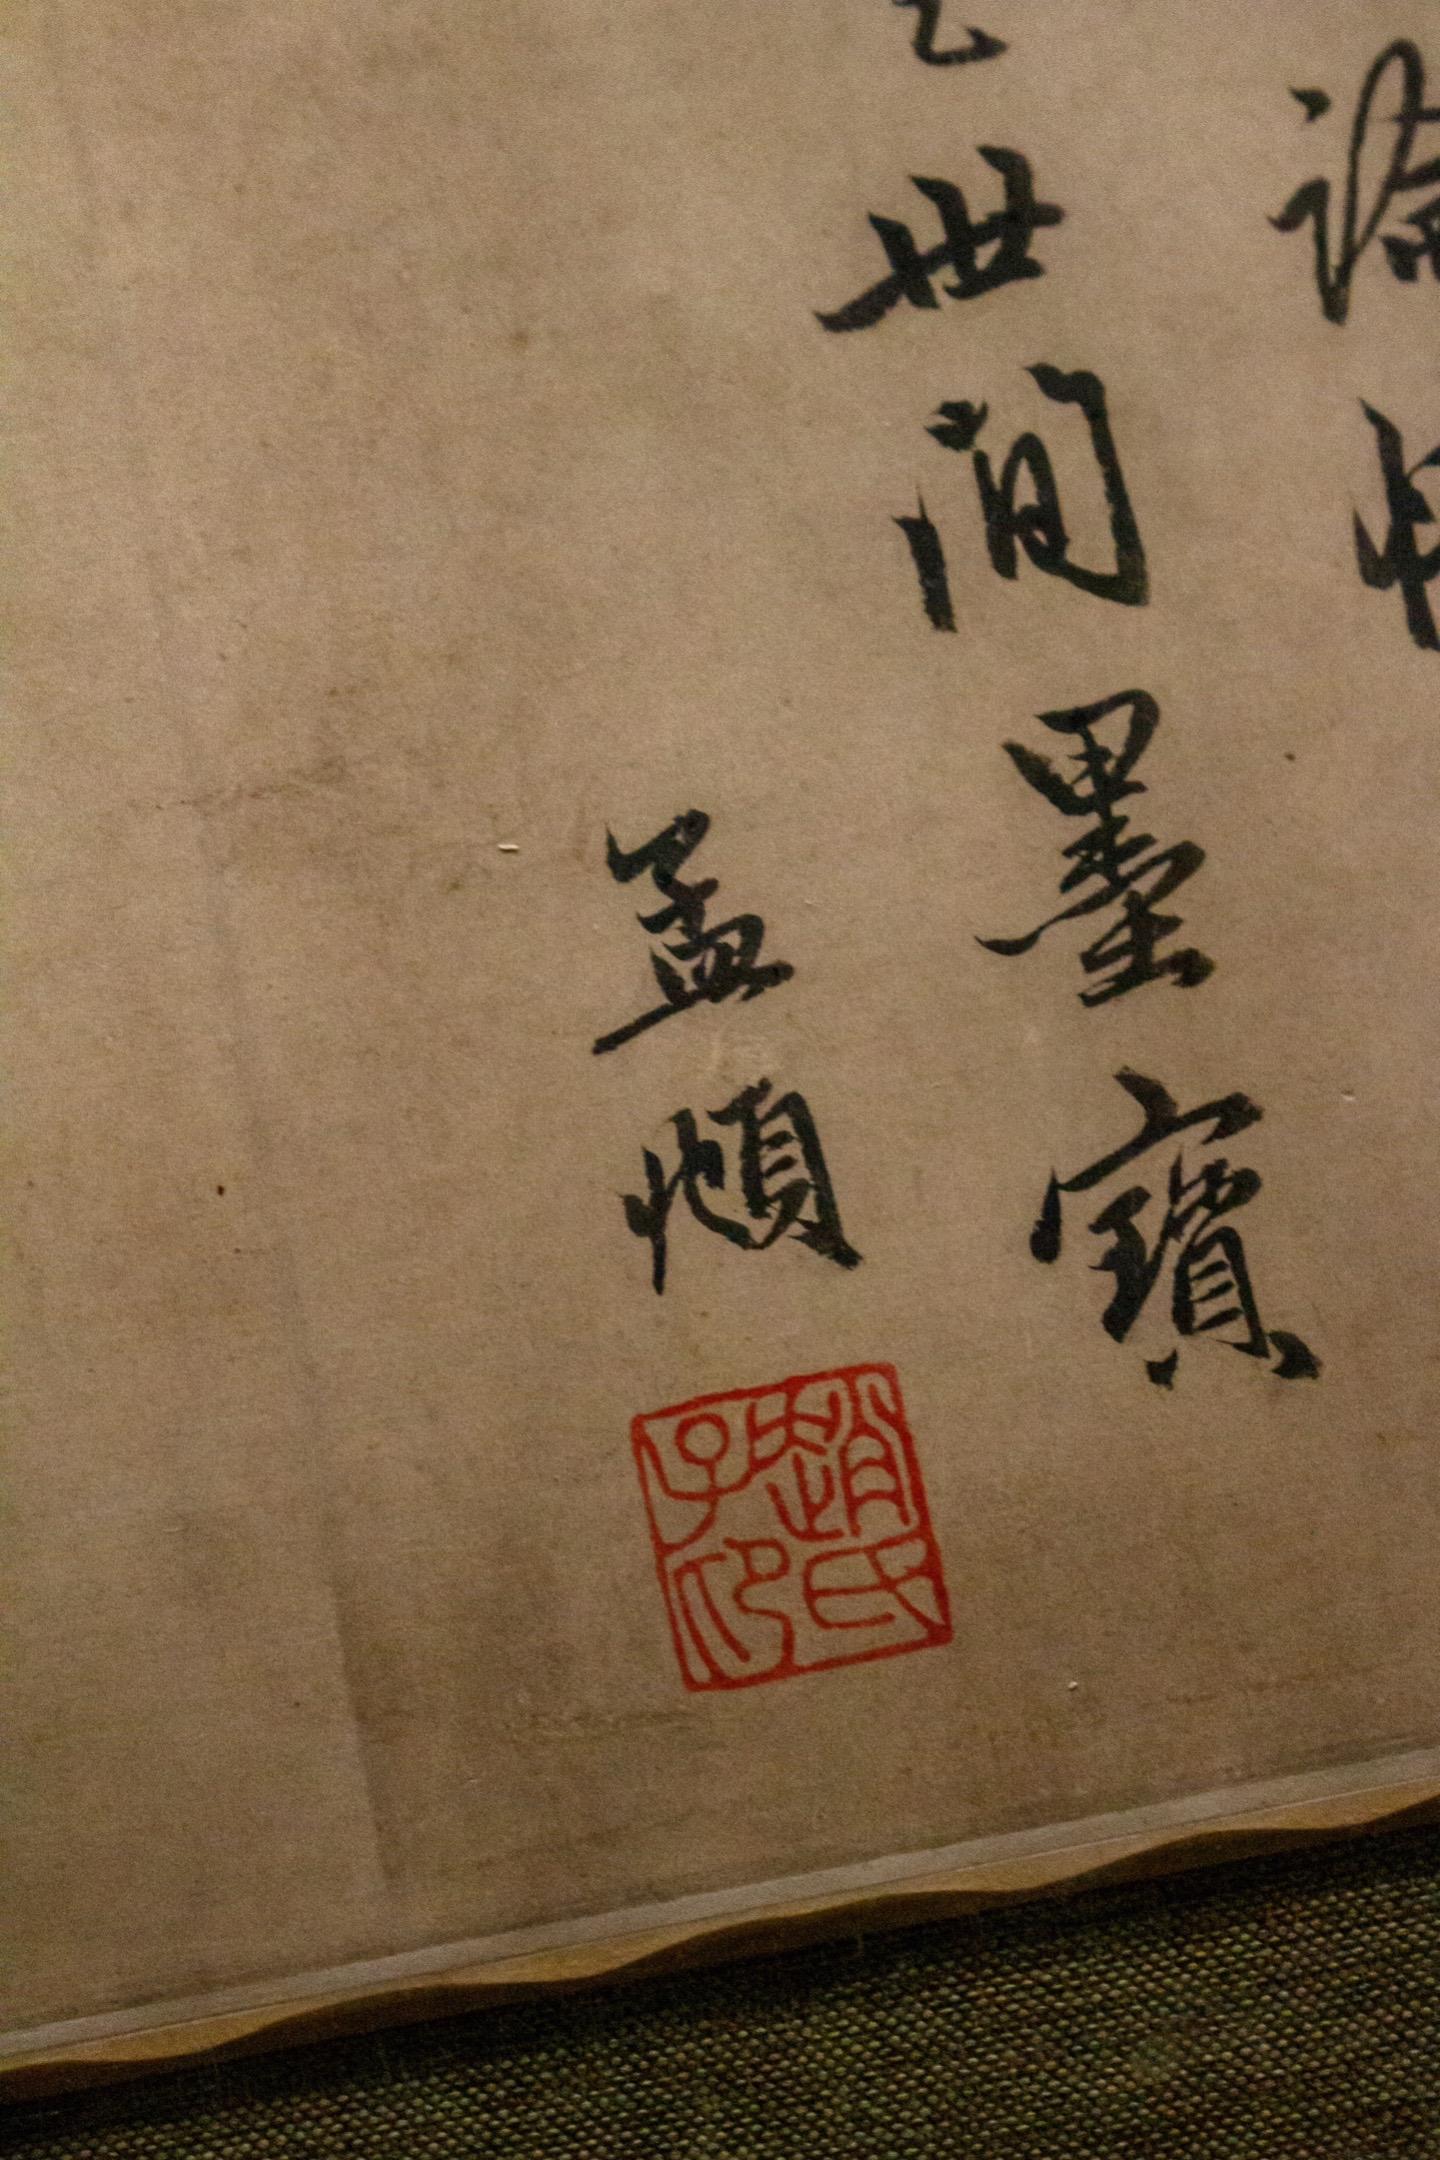 論
世間墨寶
孟頫
趙氏子印